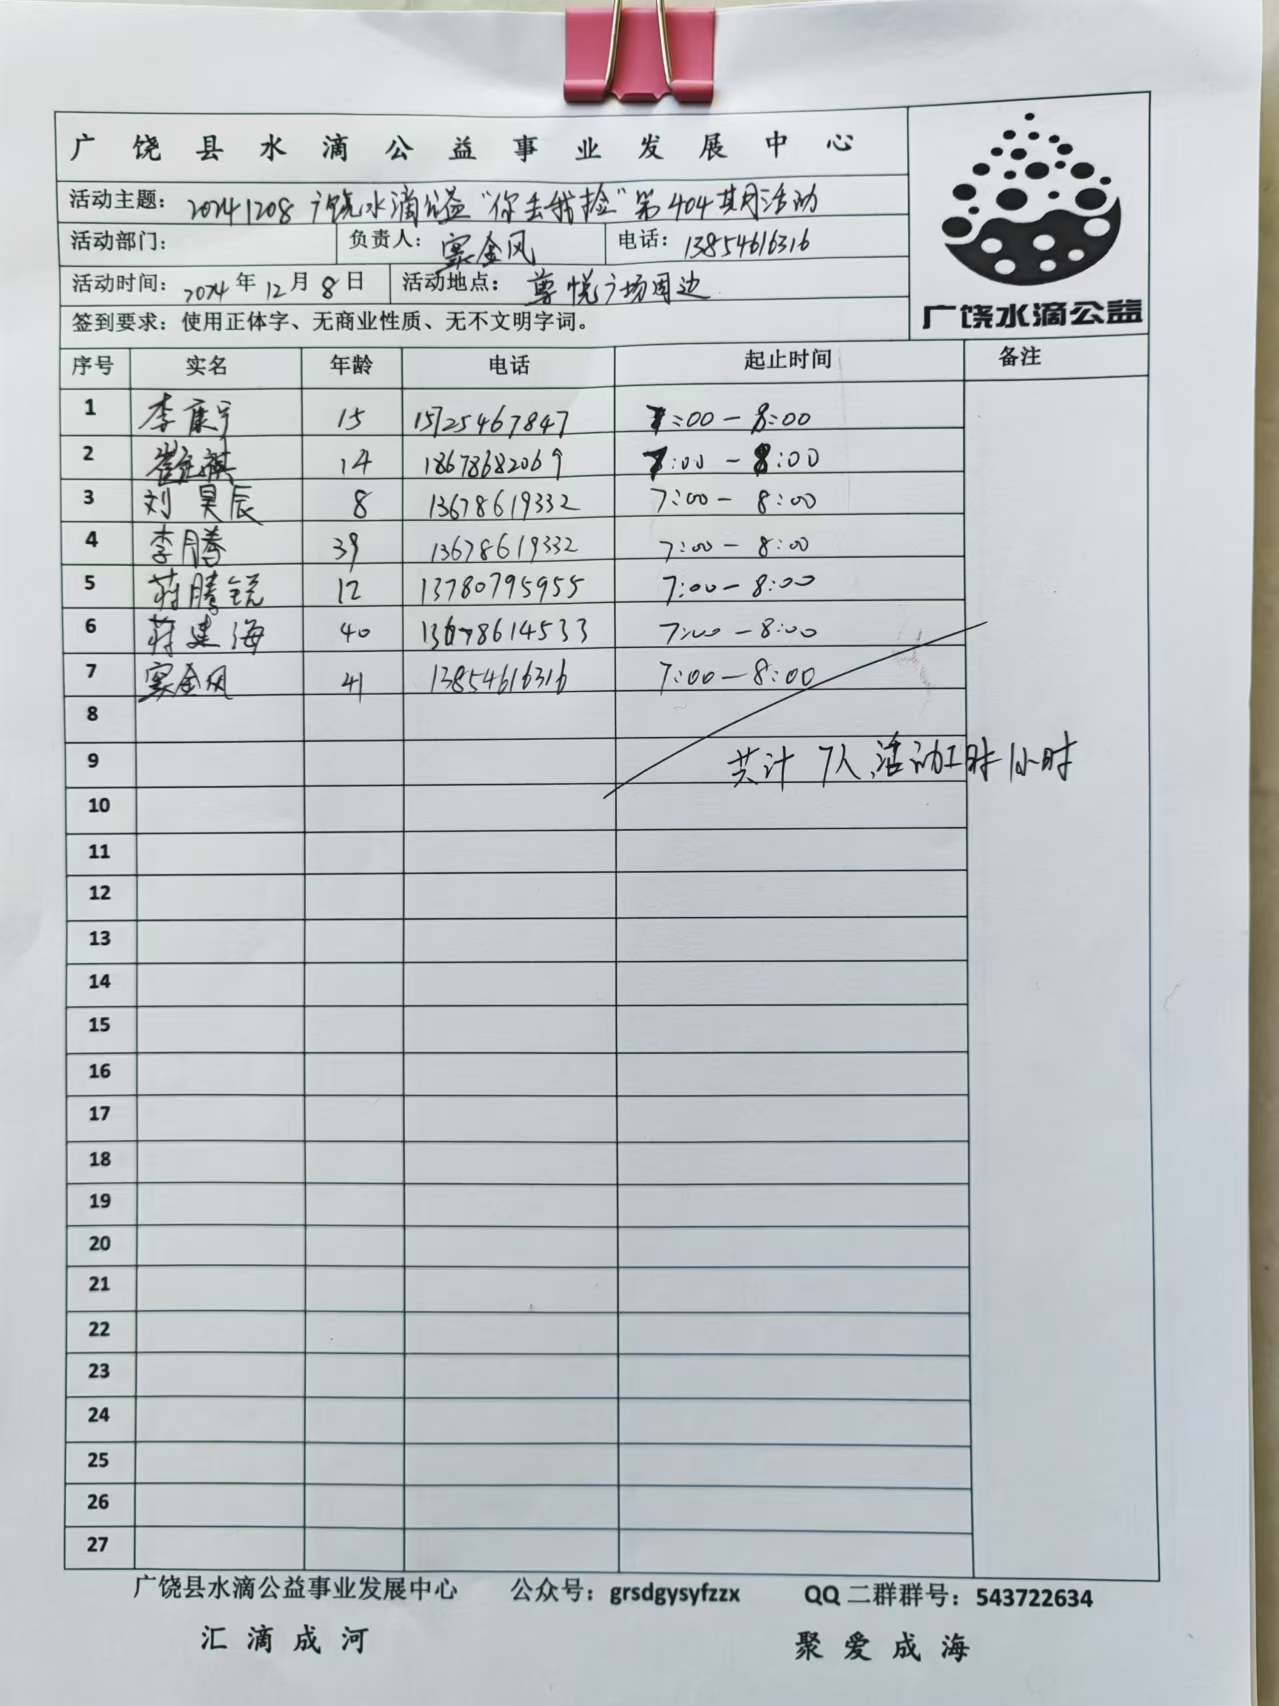 广饶县水滴公益事业发展中心
活动主题：20241208广饶水滴公益“你丢我捡”第404期活动
活动部门： 负责人：窦金凤 电话：13854616316
活动时间：2024年12月8日 活动地点：尊悦广场周边
签到要求：使用正体字、无商业性质、无不文明字词。
广饶水滴公益
序号 实名 年龄 电话 起止时间 备注
1 李康宁 15 15725467847 7:00-8:00
2 崔祺 14 18678682069 7:00-8:00
3 刘昊辰 8 13678619332 7:00-8:00
4 李腾 39 13678619332 7:00-8:00
5 蒋腾锐 12 13780795955 7:00-8:00
6 蒋建海 40 13678614533 7:00-8:00
7 窦金凤 41 13854616316 7:00-8:00
8
9 共计7人、活动工时1小时
10
11
12
13
14
15
16
17
18
19
20
21
22
23
24
25
26
27
广饶县水滴公益事业发展中心 公众号：grsdgysyfzzx QQ二群群号：543722634
汇滴成河 聚爱成海